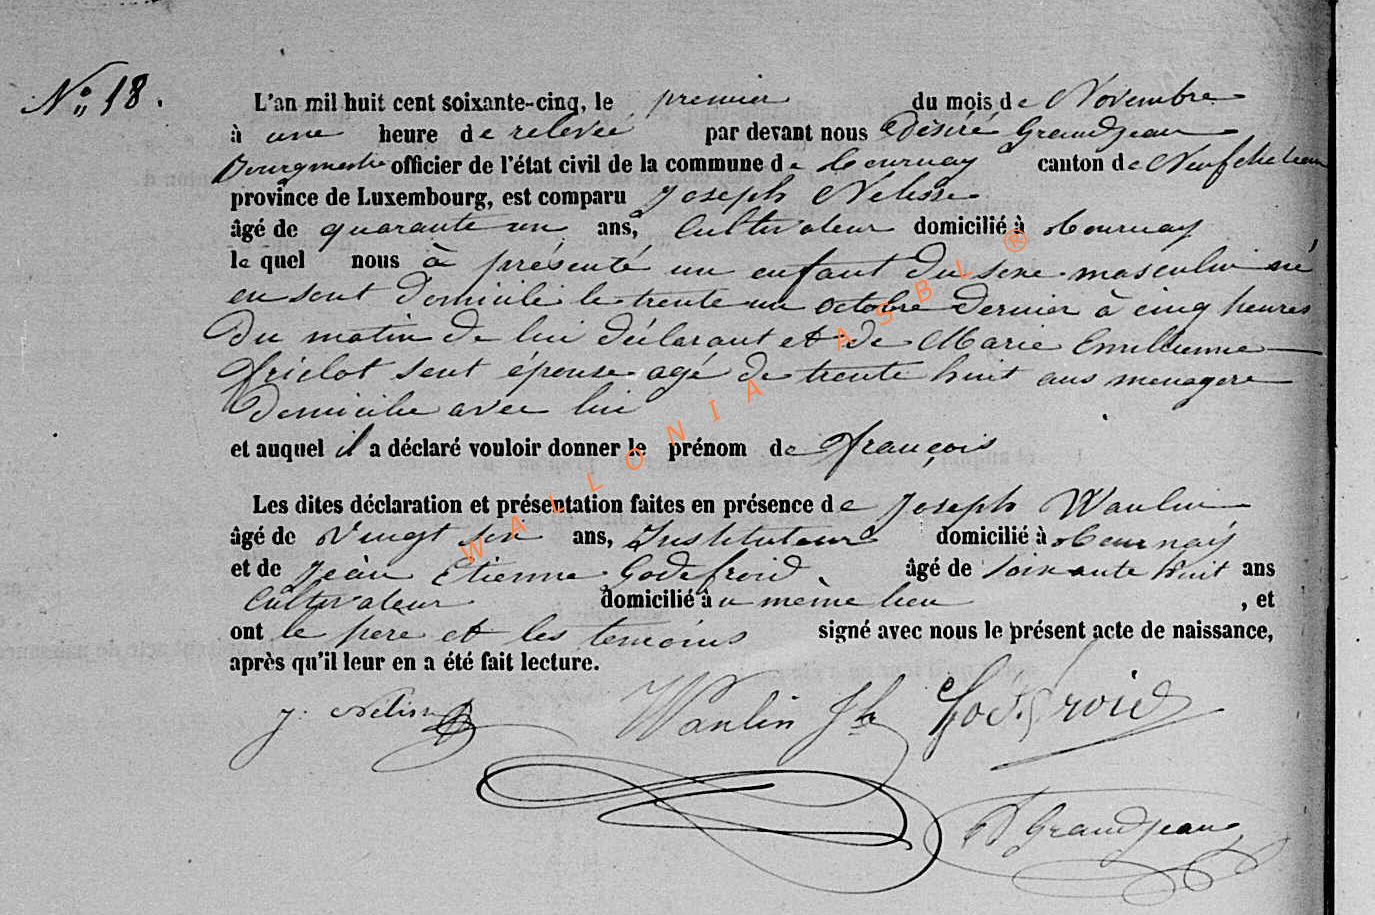 N° 18.
L'an mil huit cent soixante-cinq, le premier du mois de Novembre
à une heure de relevée par devant nous Désiré Grandjean
Bourgmestre officier de l'état civil de la commune de Tournay canton de Neufchateau
province de Luxembourg, est comparu Joseph Nelisse
âgé de quarante un ans, Cultivateur domicilié à Tournay
le quel nous à présenté un enfant du sexe masculin né
en sont domicile le trente un octobre dernier à cinq heures
du matin de lui déclarant et de Marie Emilienne
sent épouse agé de trente huit ans menagere
domicilie avec lui
et auquel il a déclaré vouloir donner le prénom de François
Les dites déclaration et présentation faites en présence de Joseph Wanlin
âgé de vingt six ans, Instituteur domicilié à Tournay
et de Jean Etienne Godefroid âgé de soixante huit ans
Cultivateur domicilié au même lieu , et
ont le père et les temoins signé avec nous le présent acte de naissance,
après qu'il leur en a été fait lecture.
J. Nelisse Wanlin Jh Godefroid
D Grandjean
WALLONIA ASBL ®